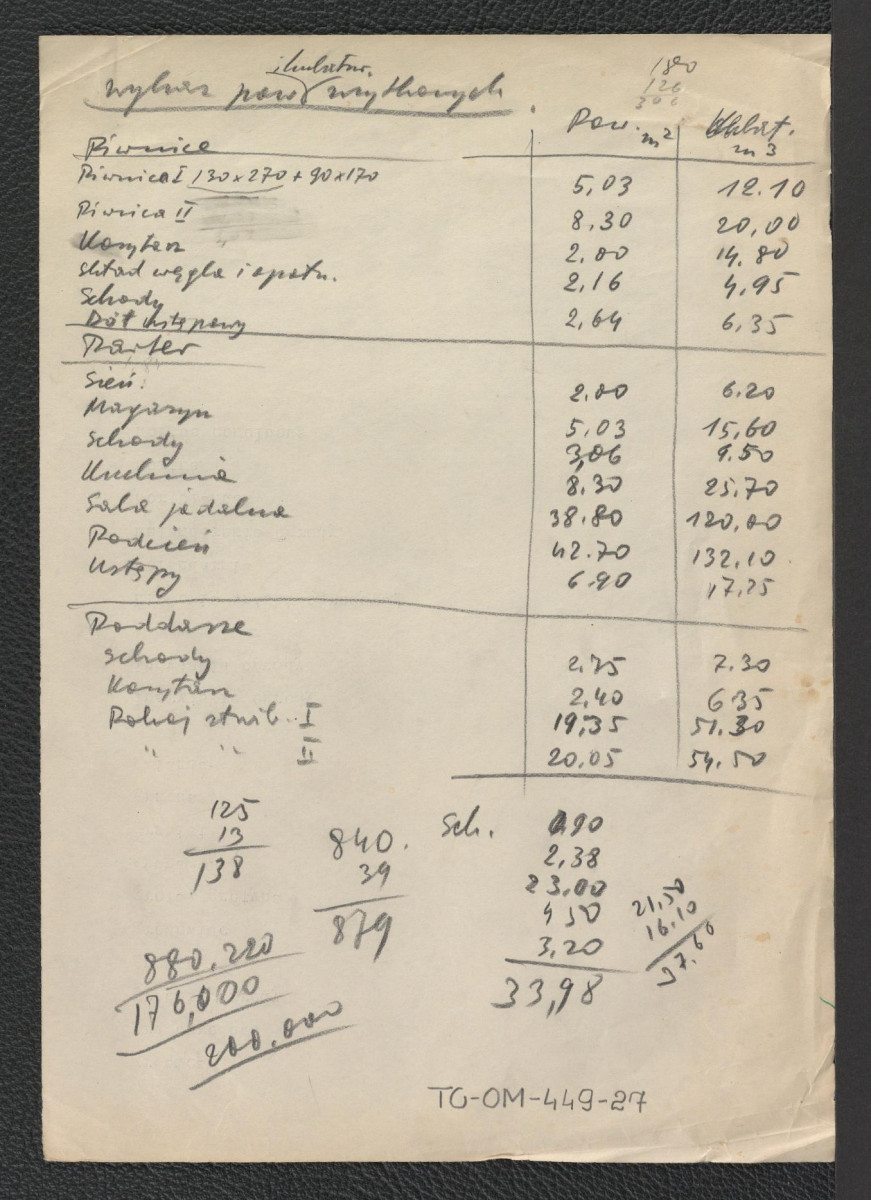 i kubatur.
wykaz pow. użytkowych
180
126
306
Pow. m² Kubat. m3
Piwnice
Piwnica I 130x270 + 90x170 5,03 12.10
Piwnica II 8,30 20,00
Korytarz " 2,00 14.80
skład węgla i opału. 2,16 4,95
Schody 2,64 6,35
Dół ustępowy
Parter
Sień. 2.00 6.20
Magazyn 5,03 15,60
Schody 3,06 9.50
Kuchnia 8.30 25.70
Sala jadalna 38.80 120,00
Podcień 42.70 132,10
Ustępy 6.90 17,25
Poddasze
Schody 2.75 7.30
Korytarz 2,40 6.35
Pokój zbib.. I 19,35 51.30
" " II 20.05 54.50
125
13
138
840.
39
879
880.220
176,000
200.000
Sch. 0,90
2,38
23,00
4 50
3,20
33,98
21,50
16.10
37.60
TG-OM-449-27